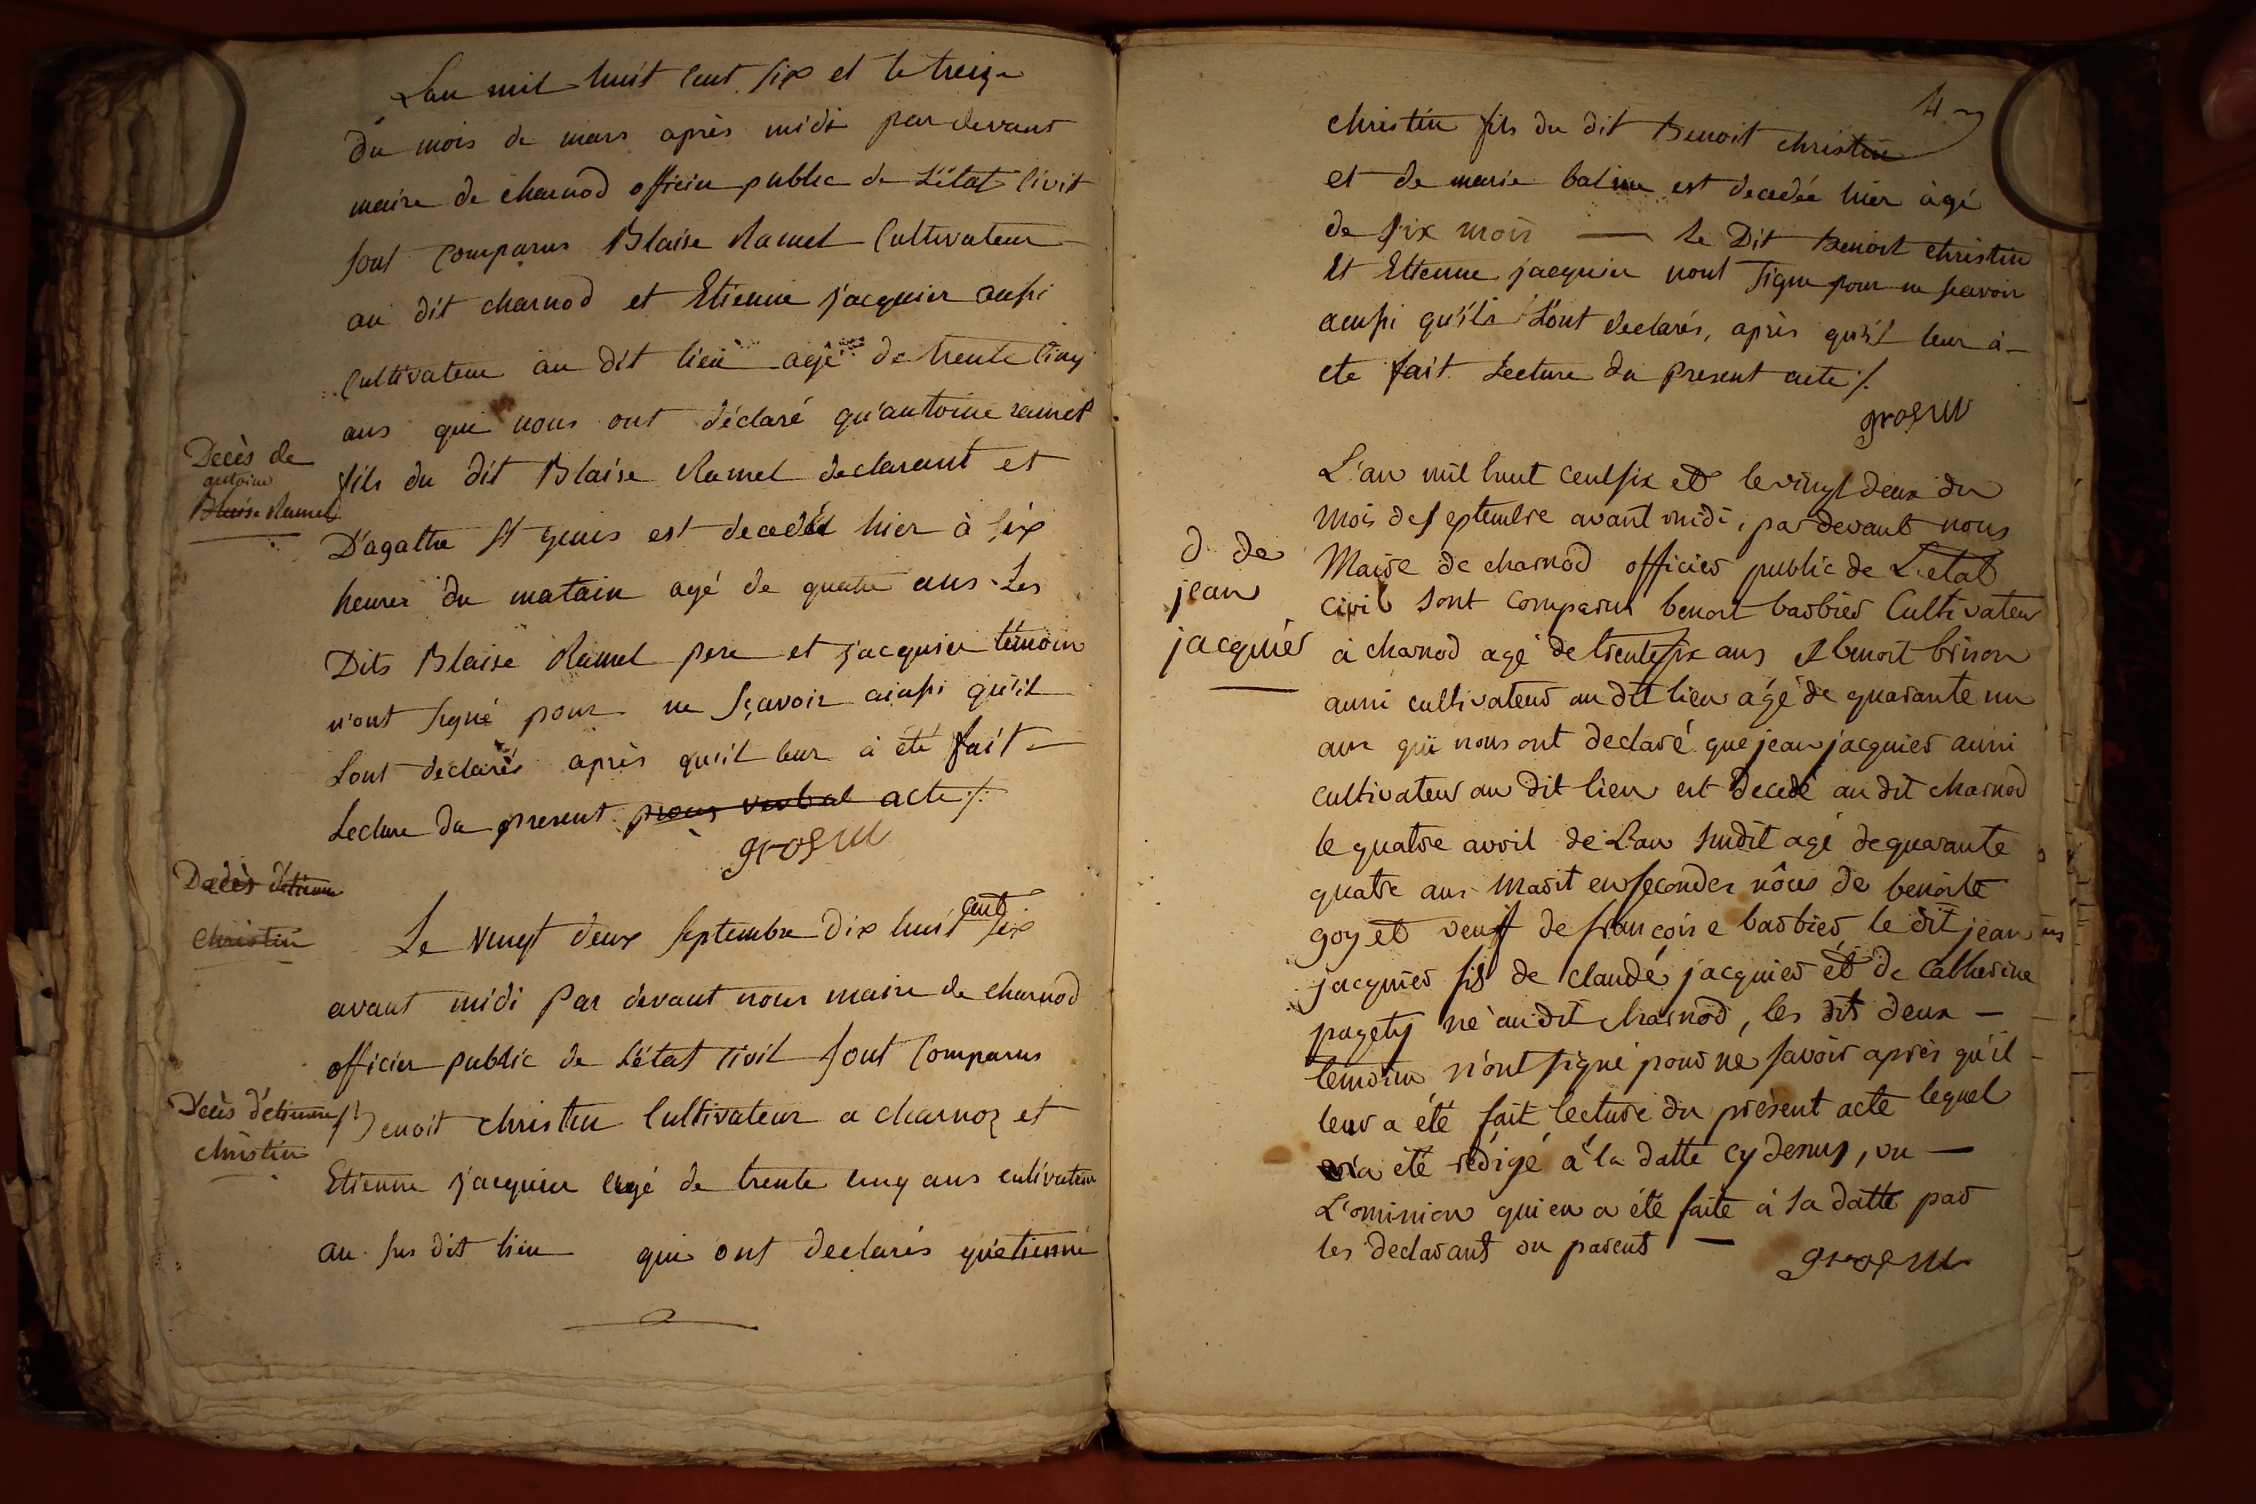 Lan mil huit cent six et le treize
du mois de mars après midi par devant
maire de charnod officier public de L'état Civil
sont Comparus Blaise Ramel Cultivateur
au dit charnod et Etienne jacquier aussi
Cultivateur au dit lieu agé de trente cinq
ans qui nous ont déclaré qu'antoine ramel
Décès de
antoine
Blaise Ramel
fils du dit Blaise Ramel declarant et
D'agathe St genis est decedé hier à six
heures du matain agé de quatre ans Les
Dits Blaise Ramel pere et jacquier témoin
n'ont signé pour ne sçavoir ainsi qu'il
Lont declarés après qu'il leur à été fait
Lecture du present proces verbal acte /.
grosm
Décès d'étienne
christin
Le vingt deux septembre dix huit cent six
avant midi Par devant nous maire de charnod
officier public de L'état civil sont Comparus
Décès d'etienne
christin
Benoit christin Cultivateur a charnoz et
Etienne jacquier agé de trente cinq ans cultivateur
au sus dit lieu qui ont declarés qu'etienne
4
christin fils du dit Benoit christin
et de marie balme est decedée hier àgé
de six mois — Le Dit Benoit christin
Et Etienne jacquier nont signe pour ne scavoir
ainsi qu'ils L'ont declarés, après qu'il leur à
ete fait Lecture du Present acte /.
grosm
L'an mil huit cent six et le vingt deux du
mois de septembre avant midi, par devant nous
d de
jean
jacquier
Maire de charnod officier public de L'etat
civil sont comparus benoit barbier Cultivateur
à charnod agé de trente six ans et benoit brison
aussi cultivateur au dit lieu âgé de quarante un
ans qui nous ont declaré que jean jacquier aussi
cultivateur au dit lieu est Decedé au dit charnod
le quatre avril de L'an susdit agé de quarante
quatre ans marit en secondes nôces de benoite
goyet veuf de françoise barbier le dit jean
jacquier fils de claude jacquier et de Catherine
pagety né au dit charnod, les dit deux —
temoins n'ont signé pour ne savoir après qu'il
leur a été fait lecture du présent acte lequel
n'a été rédigé à la datte cy dessus, vu —
L'omission qui en a été faite à sa datte par
les declarant ou parent —
grosm